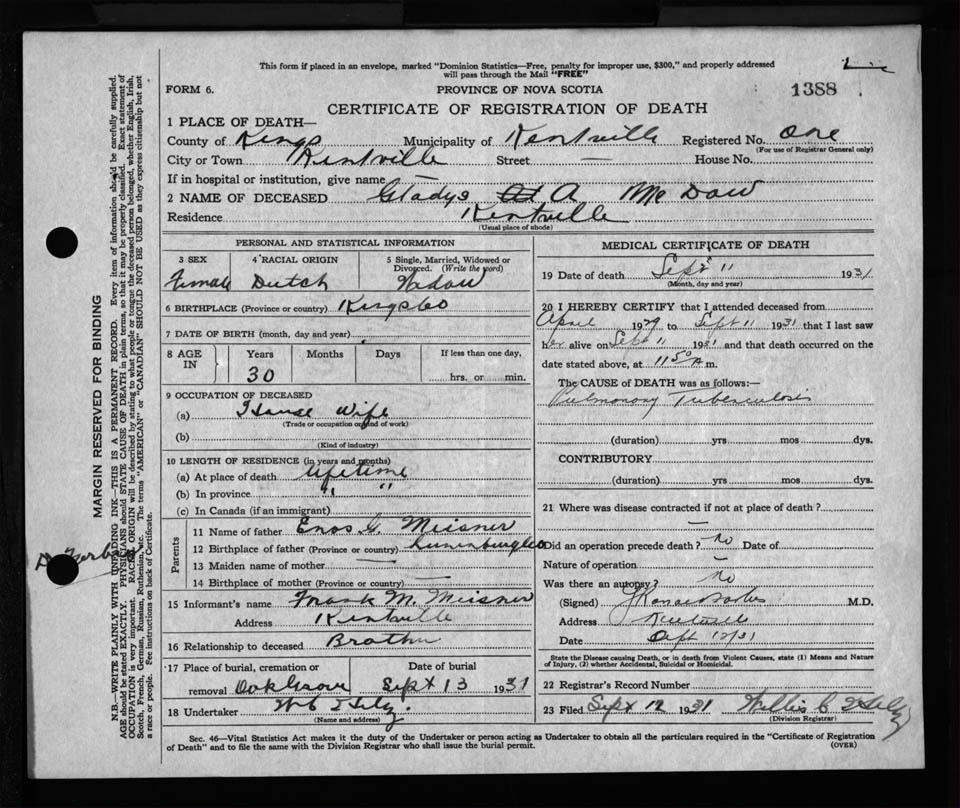 This form if placed in an envelope, marked "Dominion Statistics—Free, penalty for improper use, $300," and properly addressed
will pass through the Mail "FREE"
FORM 6.
PROVINCE OF NOVA SCOTIA
1388
CERTIFICATE OF REGISTRATION OF DEATH
1 PLACE OF DEATH—
County of Kings Municipality of Kentville Registered No. One
(For use of Registrar General only)
City or Town Kentville Street — House No.
If in hospital or institution, give name —
2 NAME OF DECEASED Gladys A Mc Dow
Residence Kentville
(Usual place of abode)
PERSONAL AND STATISTICAL INFORMATION
3 SEX 4 RACIAL ORIGIN 5 Single, Married, Widowed or
Divorced. (Write the word)
Female Dutch Widow
6 BIRTHPLACE (Province or country) Kings Co
7 DATE OF BIRTH (month, day and year)
8 AGE IN Years Months Days If less than one day,
30 hrs. or min.
9 OCCUPATION OF DECEASED
(a) House Wife
(Trade or occupation or kind of work)
(b)
(Kind of industry)
10 LENGTH OF RESIDENCE (in years and months)
(a) At place of death lifetime
(b) In province " "
(c) In Canada (if an immigrant)
Parents
11 Name of father Enos G. Meisner
12 Birthplace of father (Province or country) Lunenburg Co
13 Maiden name of mother —
14 Birthplace of mother (Province or country) —
15 Informant's name Frank M. Meisner
Address Kentville
16 Relationship to deceased Brother
17 Place of burial, cremation or Date of burial
removal Oak Grove Sept 13 1931
18 Undertaker
(Name and address)
MEDICAL CERTIFICATE OF DEATH
19 Date of death Sept 11 1931
(Month, day and year)
20 I HEREBY CERTIFY that I attended deceased from
April 1929 to Sept 11 1931 that I last saw
her alive on Sept 11 1931 and that death occurred on the
date stated above, at 11 50 A m.
The CAUSE OF DEATH was as follows:—
Pulmonary Tuberculosis
(duration) yrs mos dys.
CONTRIBUTORY
(duration) yrs mos dys.
21 Where was disease contracted if not at place of death?
—
Did an operation precede death? No Date of
Nature of operation —
Was there an autopsy? No
(Signed) M.D.
Address Kentville
Date Sept 12/31
State the Disease causing Death, or in death from Violent Causes, state (1) Means and Nature
of Injury, (2) whether Accidental, Suicidal or Homicidal.
22 Registrar's Record Number
23 Filed Sept 12 1931 Willis C
(Division Registrar)
Sec. 46—Vital Statistics Act makes it the duty of the Undertaker or person acting as Undertaker to obtain all the particulars required in the "Certificate of Registration
of Death" and to file the same with the Division Registrar who shall issue the burial permit.
(OVER)
MARGIN RESERVED FOR BINDING
N.B.—WRITE PLAINLY WITH UNFADING INK—THIS IS A PERMANENT RECORD. Every item of information should be carefully supplied.
AGE should be stated EXACTLY. PHYSICIANS should STATE CAUSE OF DEATH in plain terms, so that it may be properly classified. Exact statement of
OCCUPATION is very important. RACIAL ORIGIN will be described by stating to what people or tongue the deceased person belonged, whether English, Irish,
Scotch, French, German, Russian, Ruthenian, etc. The terms "AMERICAN" or "CANADIAN" SHOULD NOT BE USED as they express citizenship but not
a race or people. Fee instructions on back of Certificate.